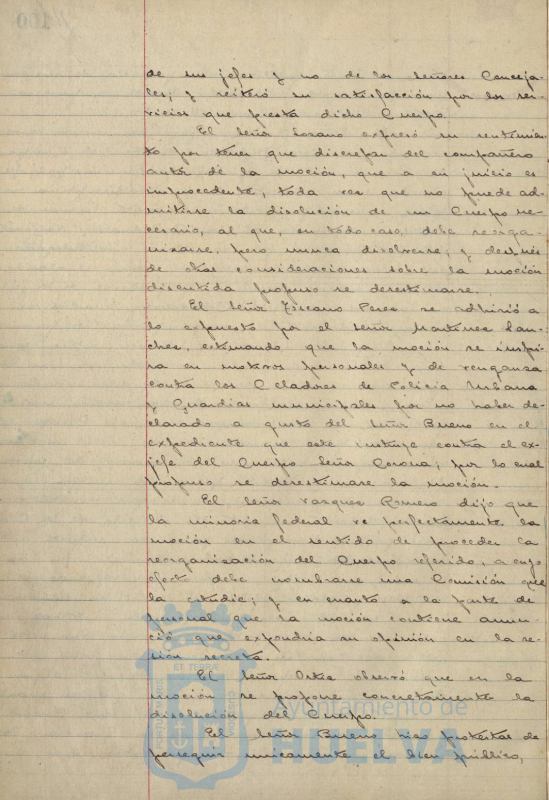 de sus jefes y no de los señores Conceja-
les; y reiteró su satisfacción por los ser-
vicios que presta dicho Cuerpo.
El Señor Lozano expresó su sentimien-
to por tener que discrepar del compañero
autor de la moción, que a su juicio es
improcedente, toda vez que no puede ad-
mitirse la disolución de un Cuerpo ne-
cesario, al que, en todo caso, debe reorga-
nizarse, pero nunca disolverse; y después
de otras consideraciones sobre la moción
discutida propuso se desestimase.
El Señor Toscano Perez se adhirió a
lo expuesto por el señor Martinez San-
chez, estimando que la moción se inspi-
ra en motivos personales y de venganza
contra los Celadores de Policía Urbana
y Guardias municipales por no haber de-
clarado a gusto del Señor Bueno en el
expediente que este instruye contra el ex-
jefe del Cuerpo Señor Corona; por lo cual
propuso se desestimase la moción.
El Señor Vazquez Romero dijo que
la minoria federal ve perfectamente la
moción en el sentido de proceder la
reorganización del Cuerpo referido, a cuyo
efecto debe nombrarse una Comisión que
la estudie; y en cuanto a la parte de
personal que la moción contiene anun-
ció que expondria su opinión en la se-
sión secreta.
El Señor Oria observó que en la
moción se propone concretamente la
disolución del Cuerpo.
El Señor Bueno hizo protestas de
perseguir unicamente el bien público,
Ayuntamiento de
HUELVA